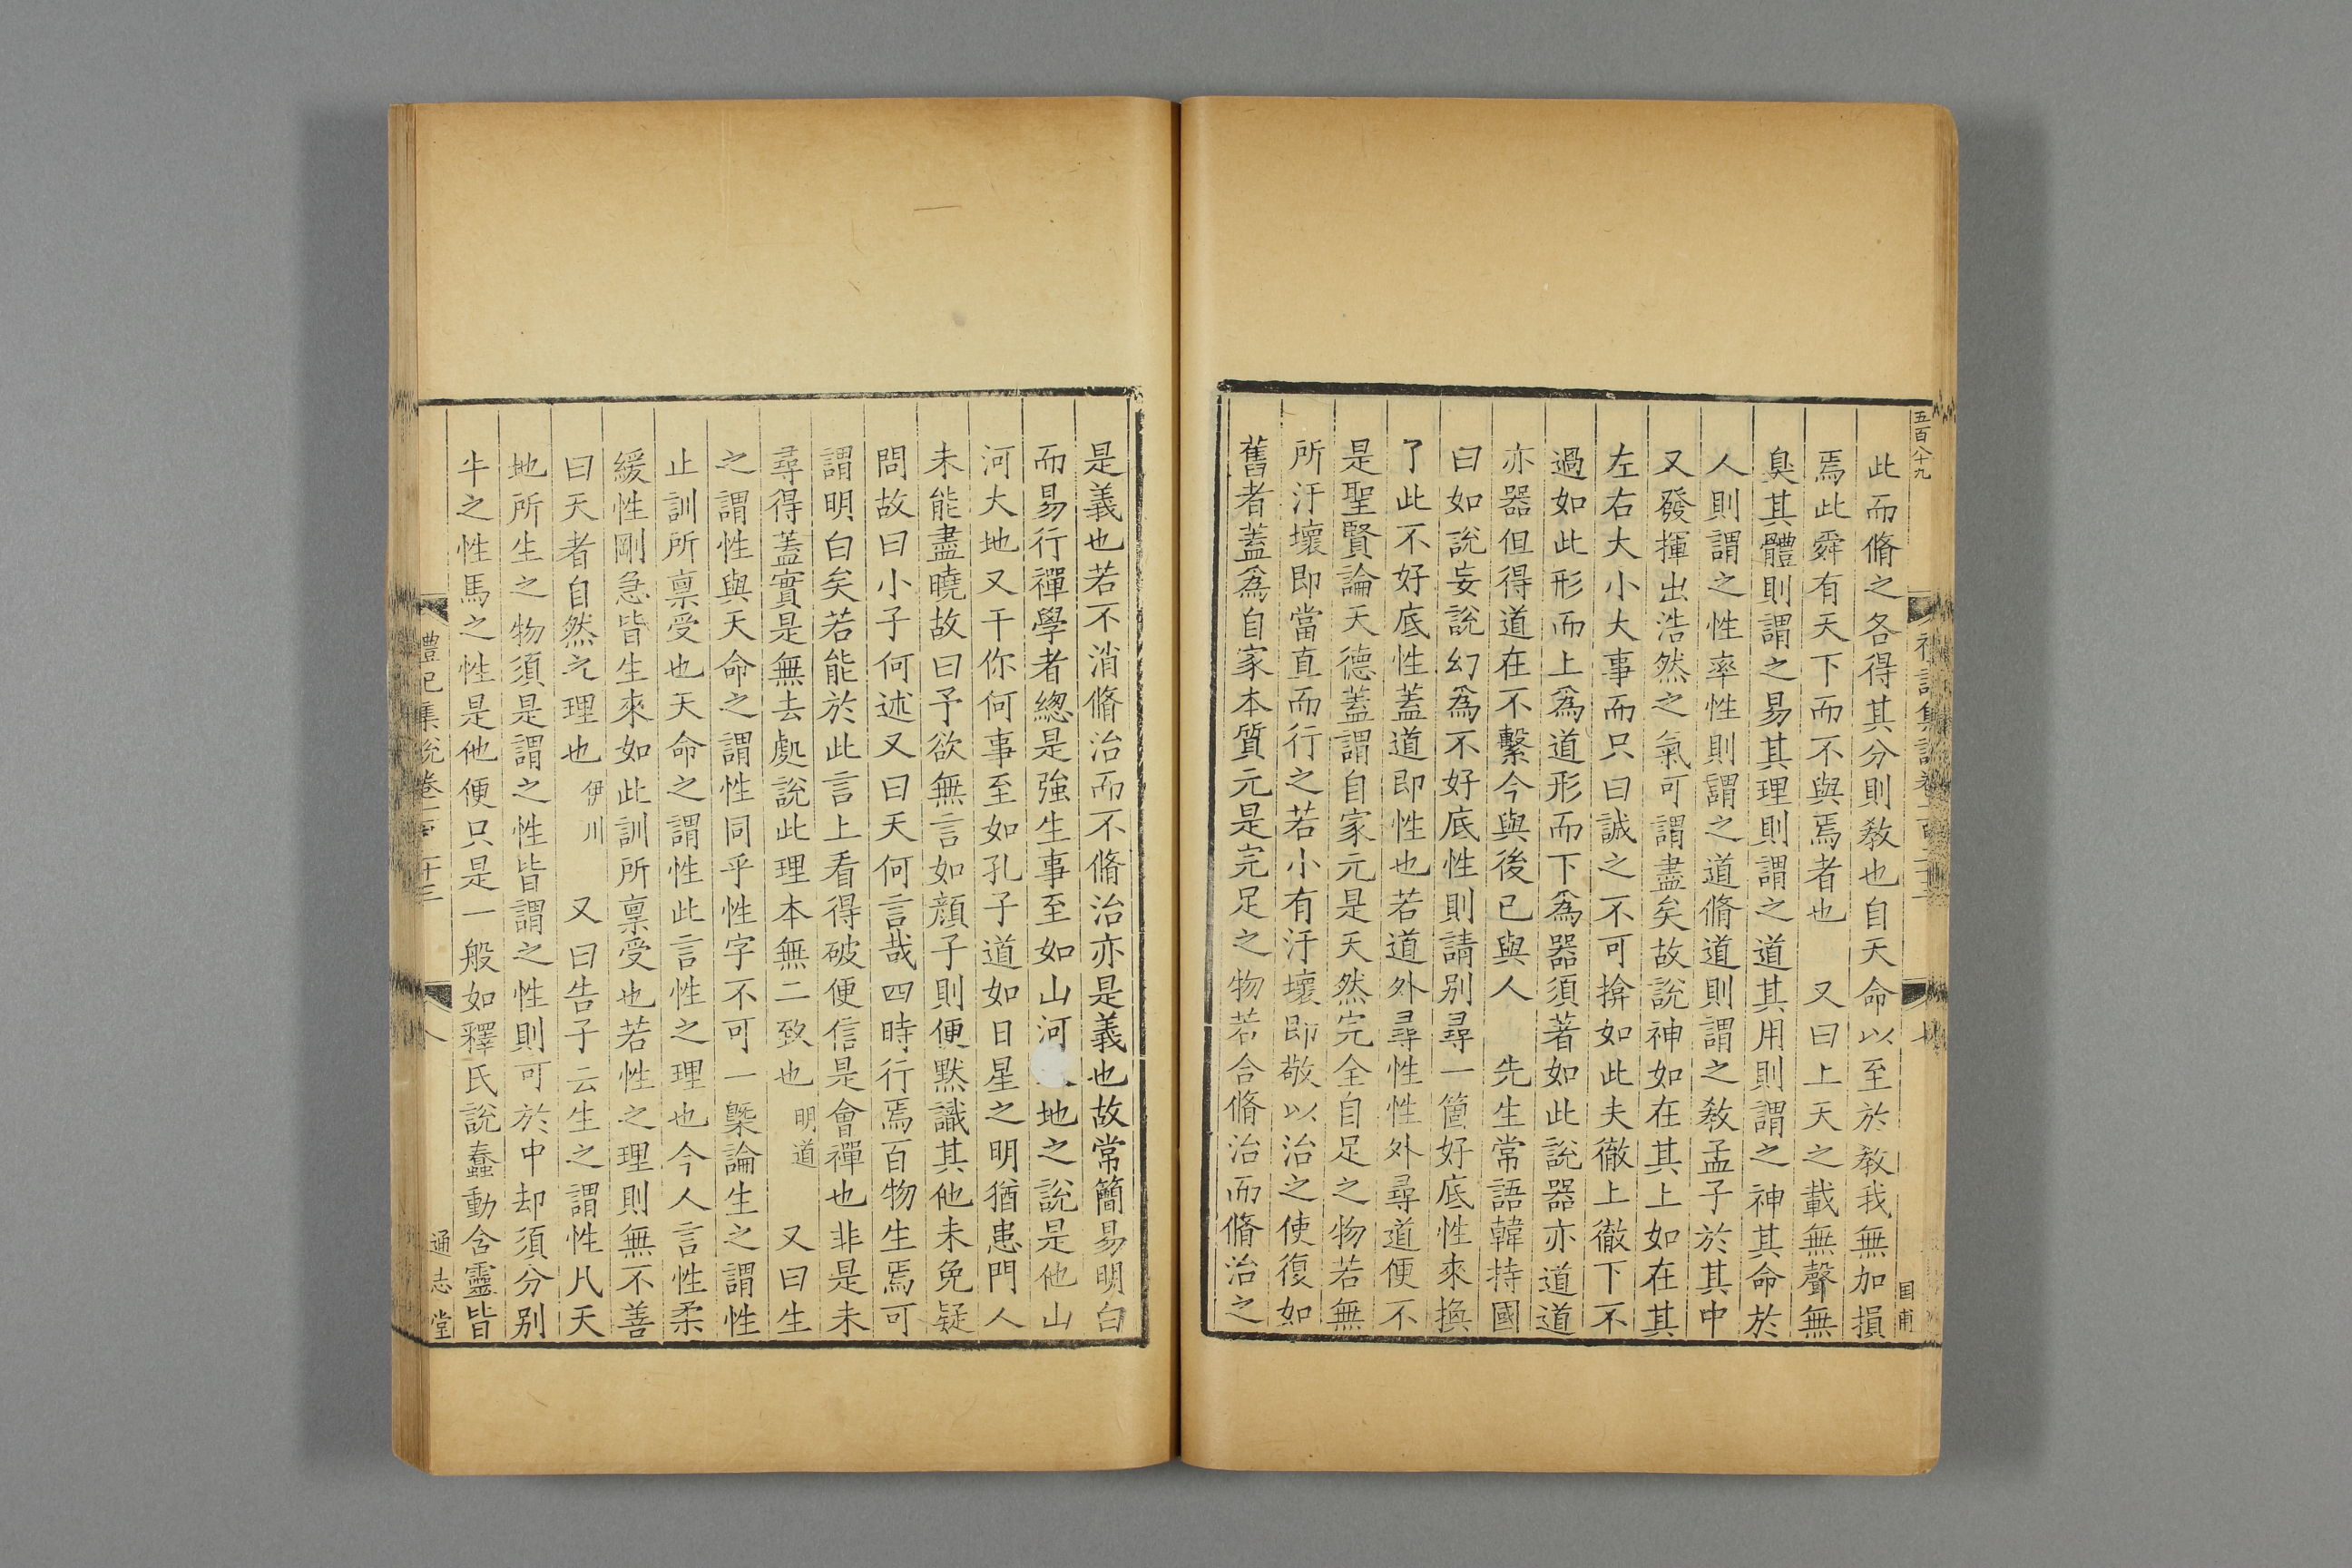 五百八十九
此而脩之各得其分則敎也自天命以至於敎我無加損
焉此舜有天下而不與焉者也　又曰上天之載無聲無
臭其體則謂之易其理則謂之道其用則謂之神其命於
人則謂之性率性則謂之道脩道則謂之敎孟子於其中
又發揮出浩然之氣可謂盡矣故說神如在其上如在其
左右大小大事而只曰誠之不可揜如此夫徹上徹下不
過如此形而上爲道形而下爲器須著如此說器亦道道
亦器但得道在不繫今與後已與人　先生常語韓持國
曰如說妄說幻爲不好底性則請别尋一箇好底性來換
了此不好底性蓋道即性也若道外尋性性外尋道便不
是聖賢論天德蓋謂自家元是天然完全自足之物若無
所汙壞即當直而行之若小有汙壞即敬以治之使復如
舊者蓋爲自家本質元是完足之物若合脩治而脩治之
国甫
是義也若不消脩治而不脩治亦是義也故常簡易明白
而易行禪學者緫是強生事至如山河地之說是他山
河大地又干你何事至如孔子道如日星之明猶患門人
未能盡曉故曰予欲無言如顔子則便黙識其他未免疑
問故曰小子何述又曰天何言哉四時行焉百物生焉可
謂明白矣若能於此言上看得破便信是會禪也非是未
尋得蓋實是無去處說此理本無二致也明道　又曰生
之謂性與天命之謂性同乎性字不可一槩論生之謂性
止訓所禀受也天命之謂性此言性之理也今人言性柔
緩性剛急皆生來如此訓所禀受也若性之理則無不善
曰天者自然之理也伊川　又曰告子云生之謂性凡天
地所生之物須是謂之性皆謂之性則可於中却須分别
牛之性馬之性是他便只是一般如釋氏說蠢動含靈皆
禮記集說卷一百二十三
八
通志堂